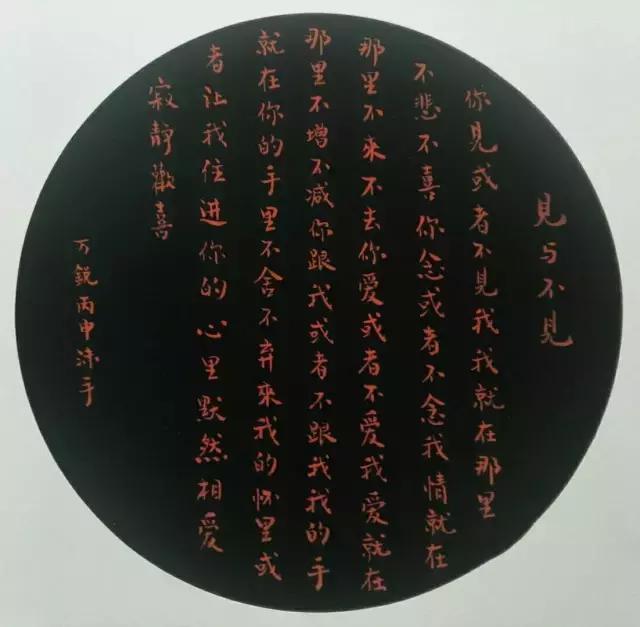 見与不見
你見或者不見我我就在那里
不悲不喜你念或者不念我情就在
那里不來不去你愛或者不爱我爱就在
那里不增不减你跟我或者不跟我我的手
就在你的手里不舍不弃來我的怀里或
者让我住进你的心里默然相爱
寂静歡喜
万銳丙申涂手